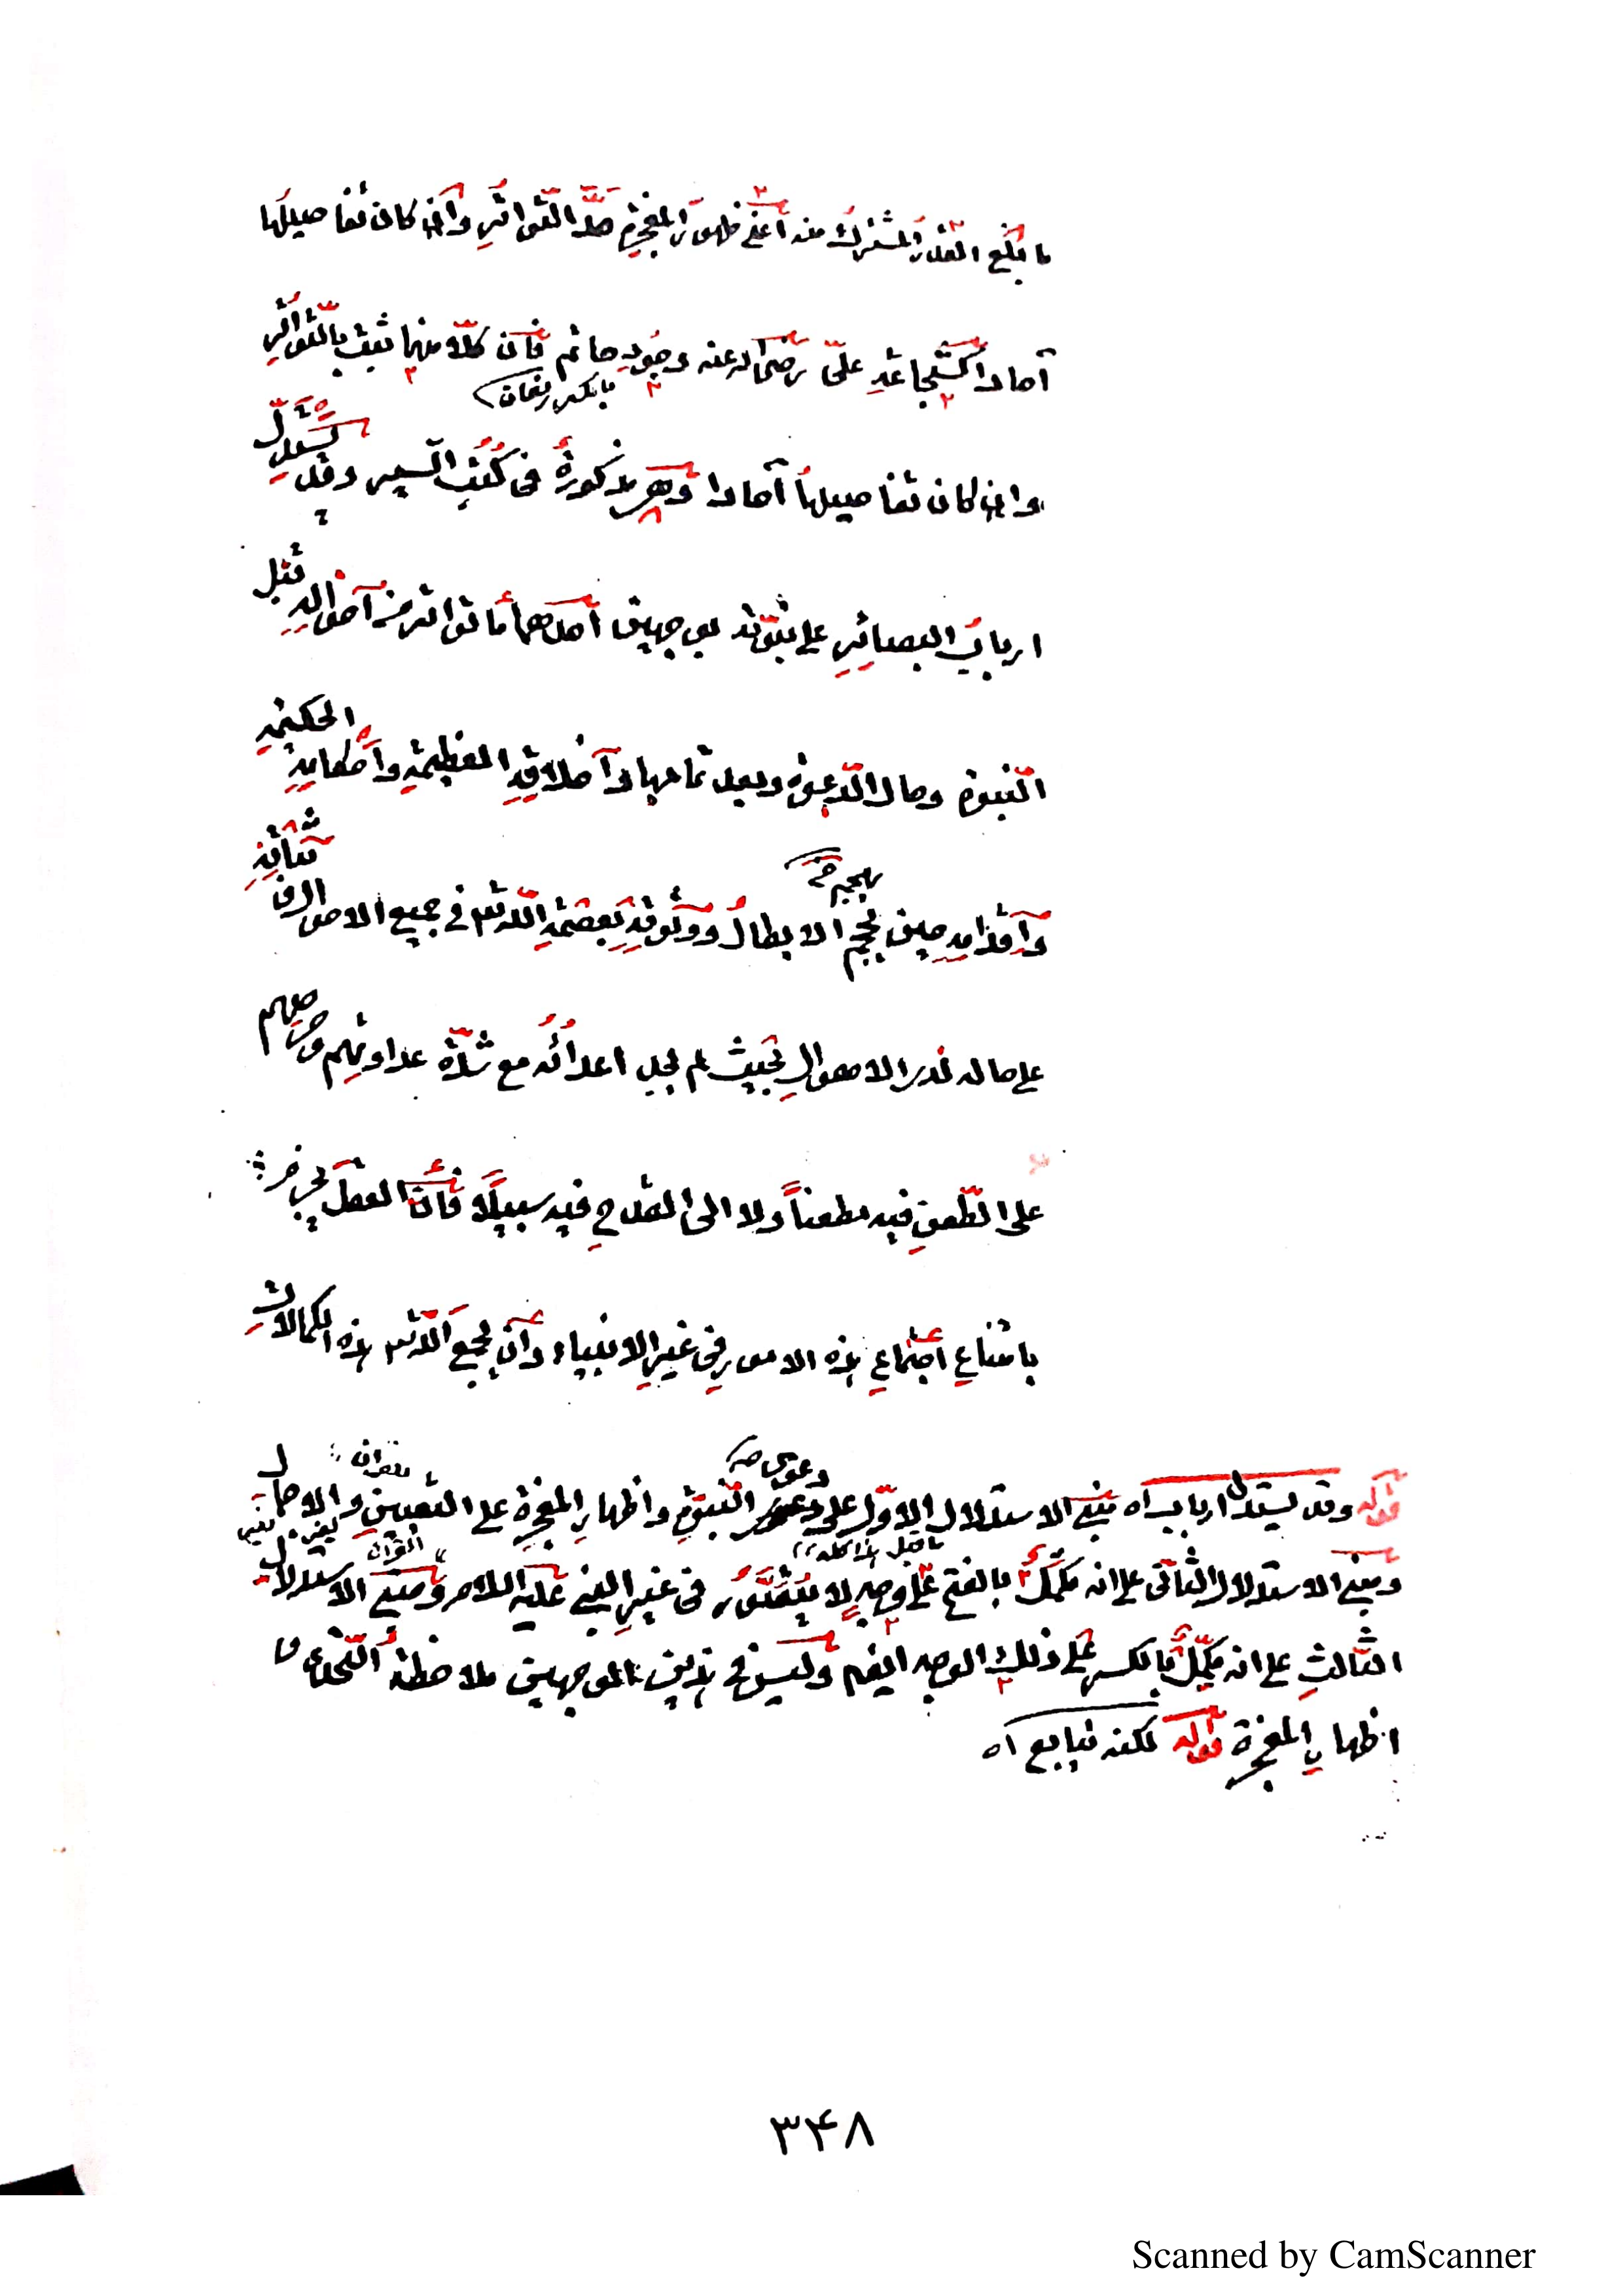 ما بلغ القدر المشترك منه اعنى ظهور المعجزة حدّ التواتر وان كان تفاصيلها
آحادا كشجاعة علىّ رضى الله عنه وجود حاتم فان كلاّ منهما ثبت بالتواتر
بالكسر
وان كان تفاصيلها آحادا وهى مذكورة فى كتب السير وقد يستدلّ
ارباب البصائر على نبوّته بوجهين احدهما ما تواتر من احواله قبل
النبوة وحال الدعوة وبعد تمامها واخلاقه العظيمة واحكامه الحكيمة
واقدامه حين يحجم الابطال ووثوقه بعصمة الله تع فى جميع الاحوال وثباته
على حاله لدى الاهوال بحيث لم يجد اعدائه مع شدّة عداوتهم وحرصهم
على الطعن فيه مطعناً ولا الى القدح فيه سبيلاً فانّ العقل يجزم
بامتناع اجتماع هذه الامور فى غير الانبياء وان يجمع الله تع هذه الكمالات
قوله وقد يستدل ارباب اه مبنى الاستدلال الاوّل على دعوى النبوّة واظهار المعجزة على التعيين والاجمال
دعوى صح
ومبنى الاستدلال الثانى على انه مكمَّل بالفتح على وجه لا يتصوّر فى غير النبى عليه السلام ومبنى الاستدلال
الثالث على انه مكمِّل بالكسر على ذلك الوجه ايضا وليس فى هذين الوجهين ملاحظة التحدى و
اظهار المعجزة قوله لكنه يتابع اه
٣۴٨
Scanned by CamScanner